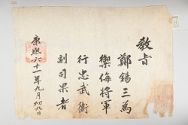 敎旨
鄭錫三爲
禦侮將軍
行忠武衛
副司果者
康熙六十一年九月初九日